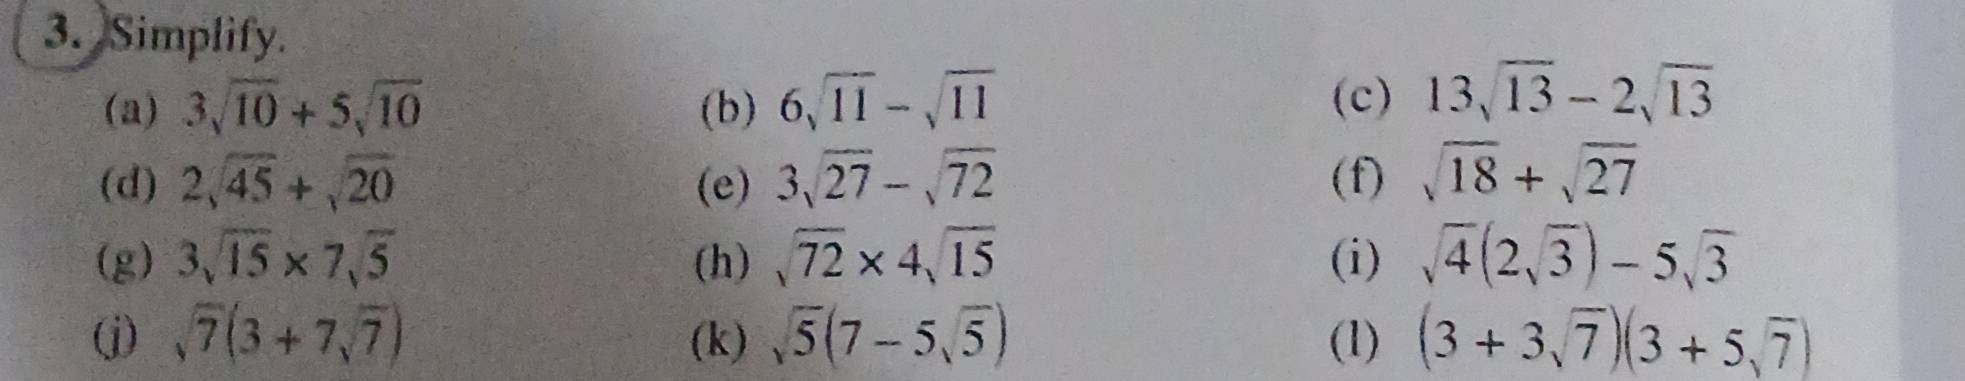 3. Simplify.
(a) 3√10 + 5√10 (b) 6√11 − √11 (c) 13√13 − 2√13
(d) 2√45 + √20 (e) 3√27 − √72 (f) √18 + √27
(g) 3√15 × 7√5 (h) √72 × 4√15 (i) √4(2√3) − 5√3
(j) √7(3 + 7√7) (k) √5(7 − 5√5) (l) (3 + 3√7)(3 + 5√7)